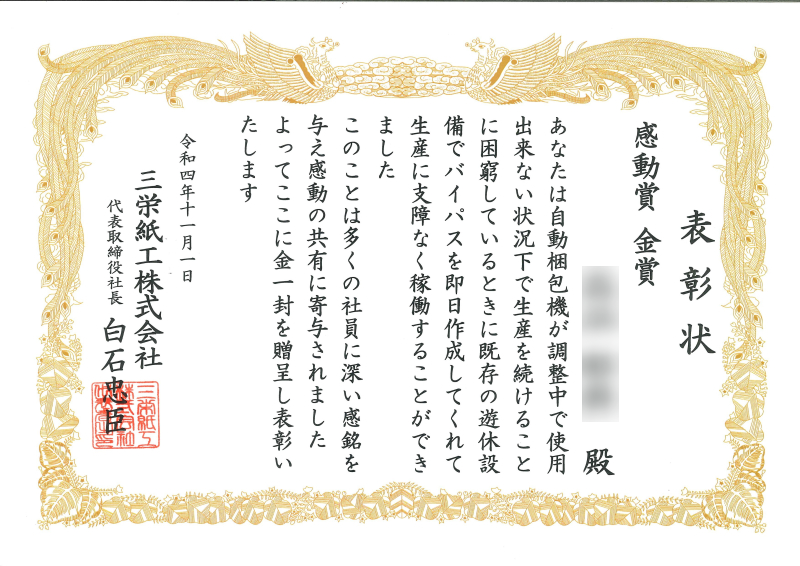 表彰状
感動賞 金賞
殿
あなたは自動梱包機が調整中で使用
出来ない状況下で生産を続けること
に困窮しているときに既存の遊休設
備でバイパスを即日作成してくれて
生産に支障なく稼働することができ
ました
このことは多くの社員に深い感銘を
与え感動の共有に寄与されました
よってここに金一封を贈呈し表彰い
たします
令和四年十一月一日
三栄紙工株式会社
代表取締役社長 白石忠臣